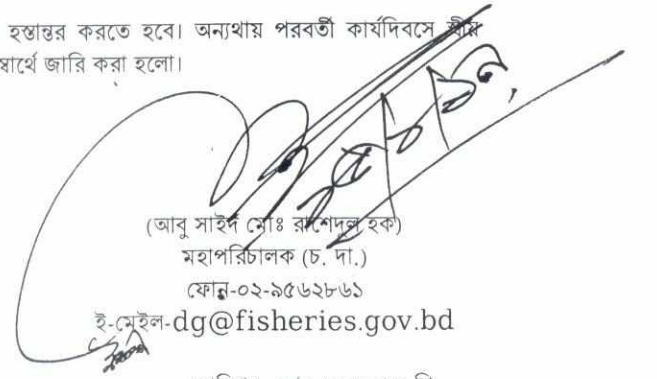 হস্তান্তর করতে হবে। অন্যথায় পরবর্তী কার্যদিবসে স্বীয়
স্বার্থে জারি করা হলো।
২৫/৮/১৯
(আবু সাইদ মোঃ রাশেদুল হক)
মহাপরিচালক (চ. দা.)
ফোন-০২-৯৫৬২৮৬১
ই-মেইল-dg@fisheries.gov.bd